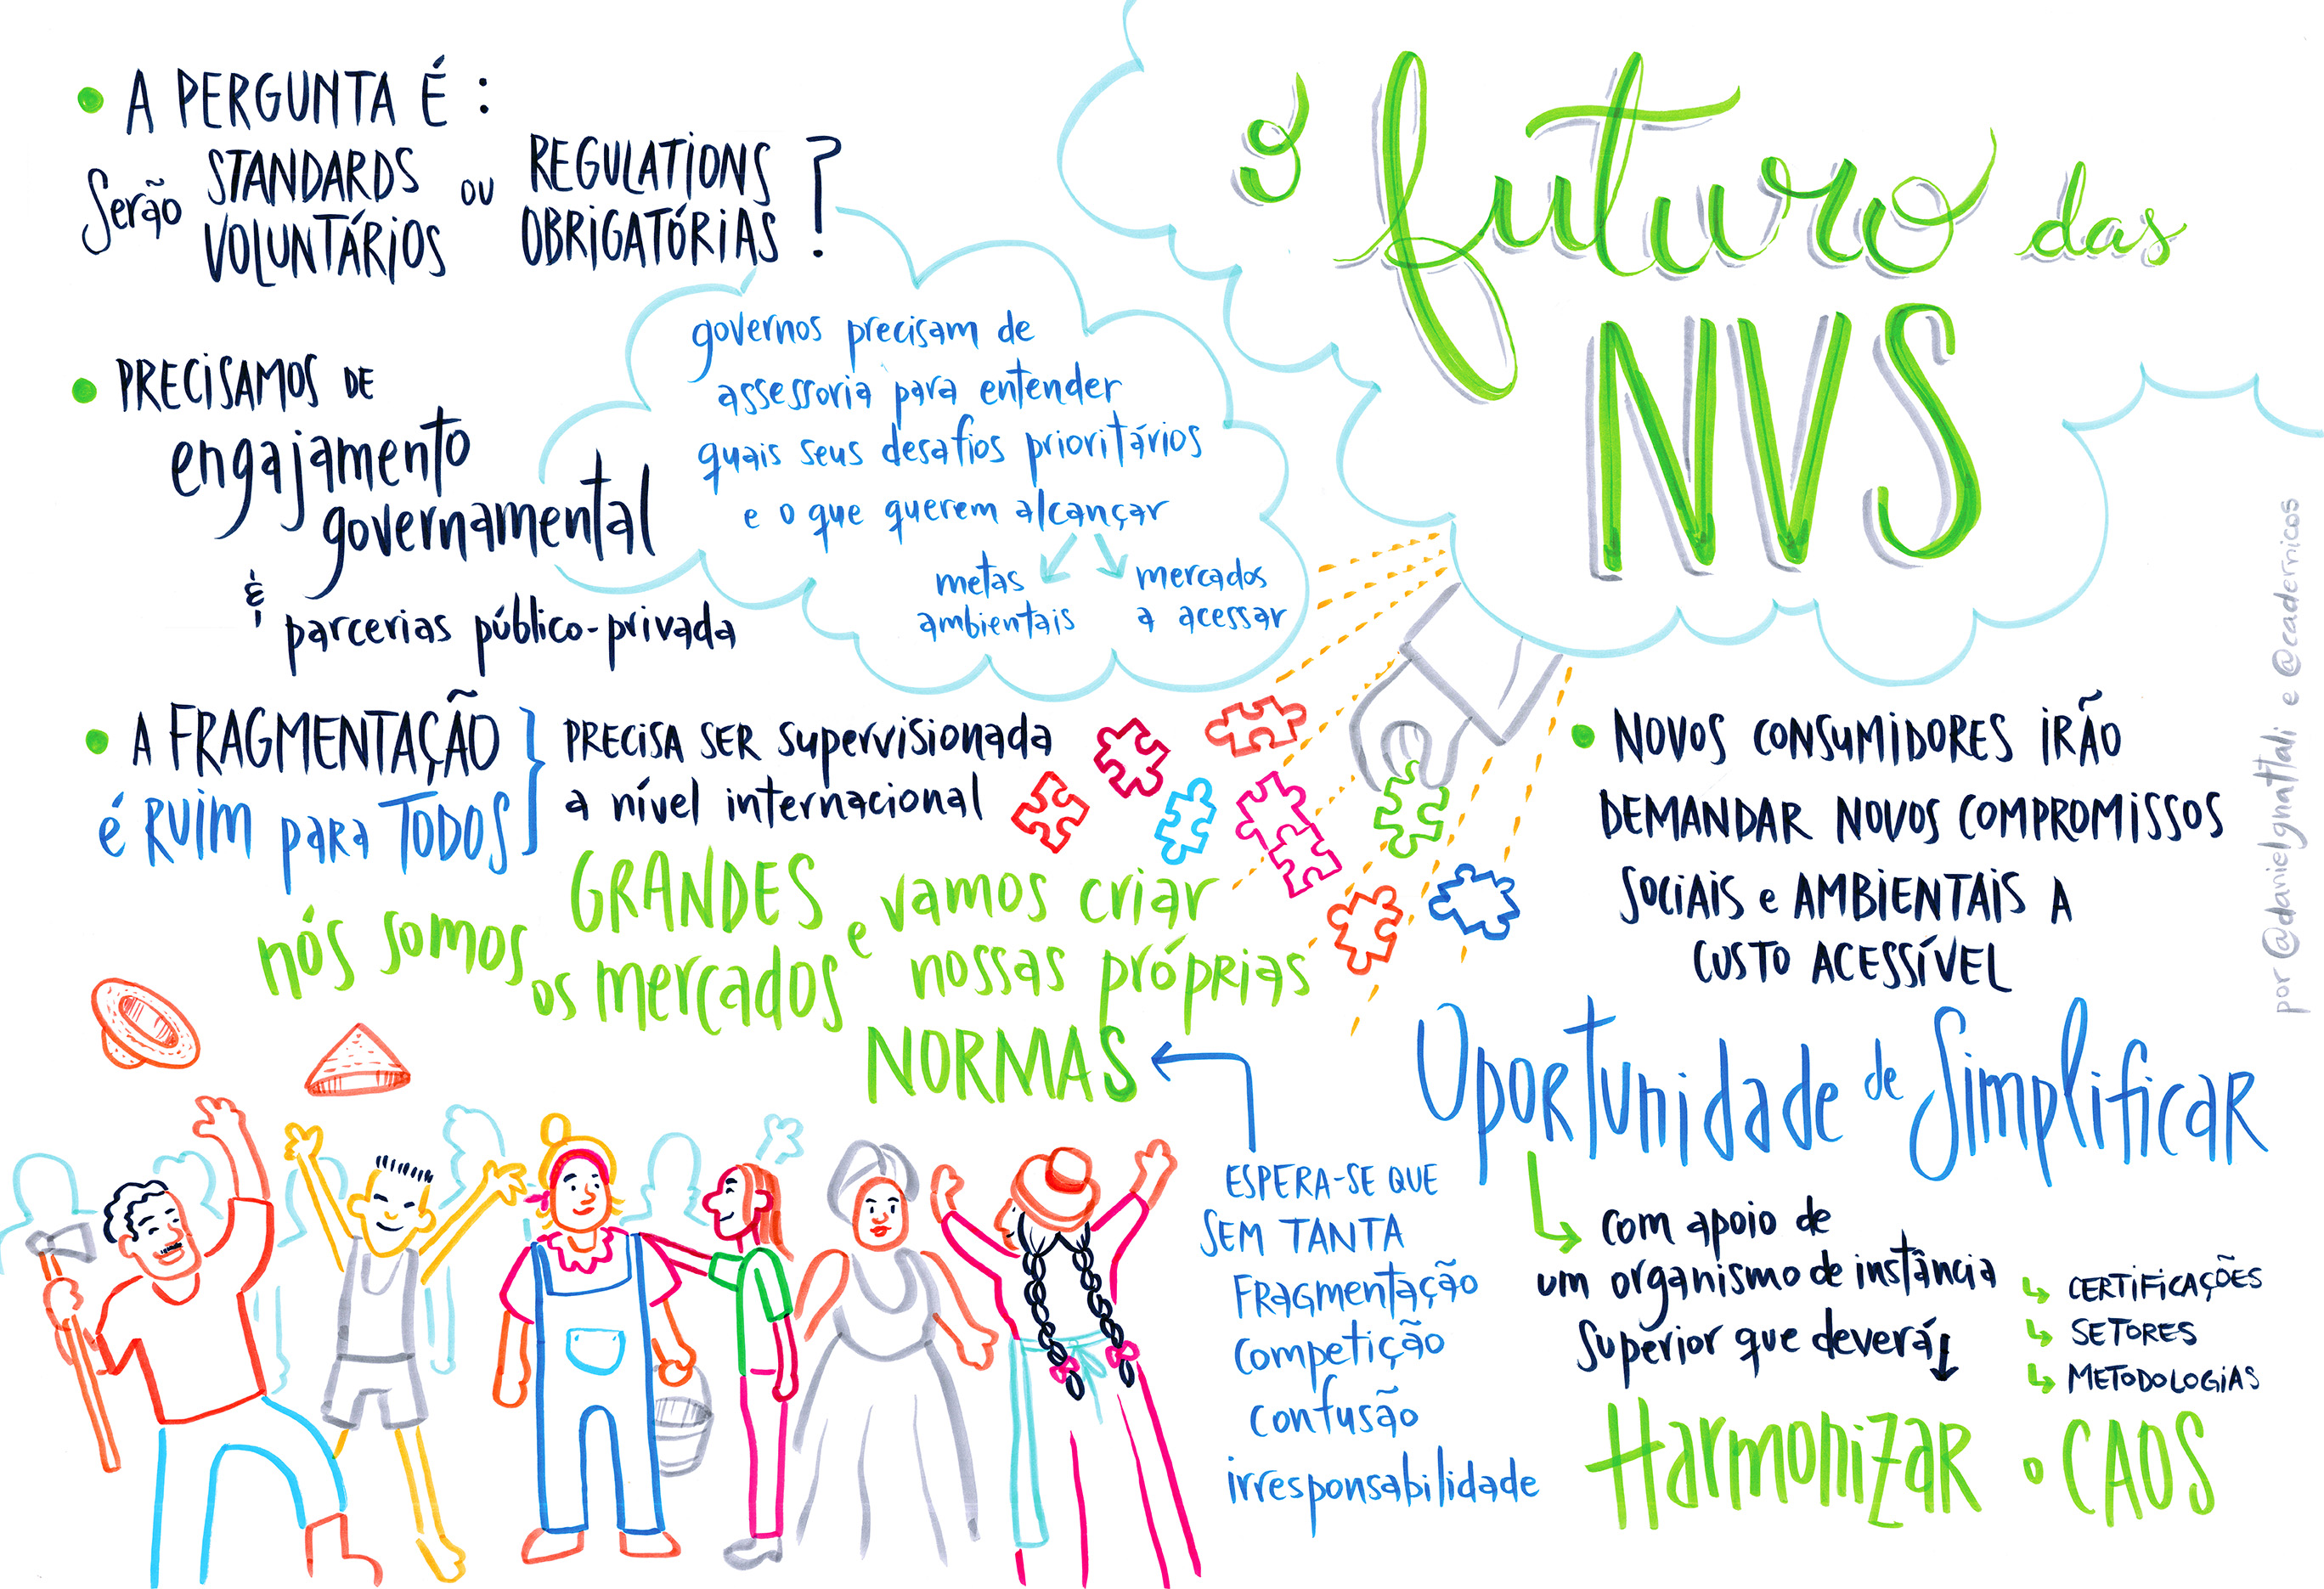 o futuro das
NVS
• A PERGUNTA É :
Serão STANDARDS VOLUNTÁRIOS ou REGULATIONS OBRIGATÓRIAS ?
governos precisam de
assessoria para entender
quais seus desafios prioritários
e o que querem alcançar
metas
ambientais
mercados
a acessar
• PRECISAMOS DE
engajamento
governamental
&
parcerias público-privada
• A FRAGMENTAÇÃO
é RUIM para TODOS
PRECISA SER supervisionada
a nível internacional
nós somos os GRANDES mercados e vamos criar
nossas próprias
NORMAS
ESPERA-SE QUE
SEM TANTA
FRAGmentação
competição
confusão
irresponsabilidade
• NOVOS CONSUMIDORES IRÃO
DEMANDAR NOVOS COMPROMISSOS
SOCIAIS e AMBIENTAIS A
CUSTO ACESSÍVEL
Oportunidade de Simplificar
com apoio de
um organismo de instância
superior que deverá
Harmonizar o CAOS
CERTIFICAÇÕES
SETORES
METODOLOGIAS
por @danielgnattali e @cadernicos